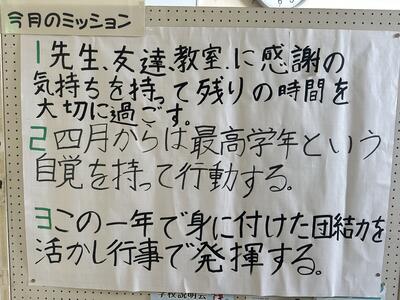 今月のミッション
1 先生、友達、教室、に感謝の
気持ちを持って残りの時間を
大切に過ごす。
2 四月からは最高学年という
自覚を持って行動する。
3 この一年で身に付けた団結力を
活かし行事で発揮する。
学校説明会